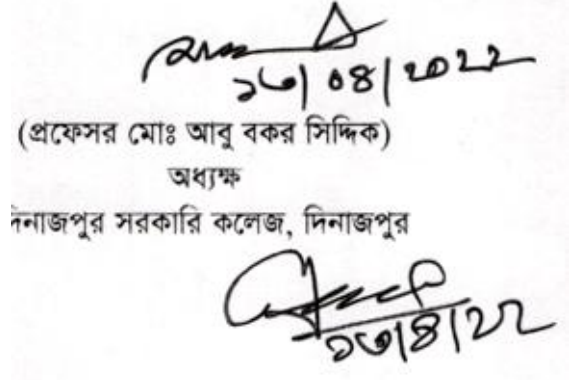 ১৩/০৪/২০২২
(প্রফেসর মোঃ আবু বকর সিদ্দিক)
অধ্যক্ষ
দিনাজপুর সরকারি কলেজ, দিনাজপুর
১৩/৪/২২